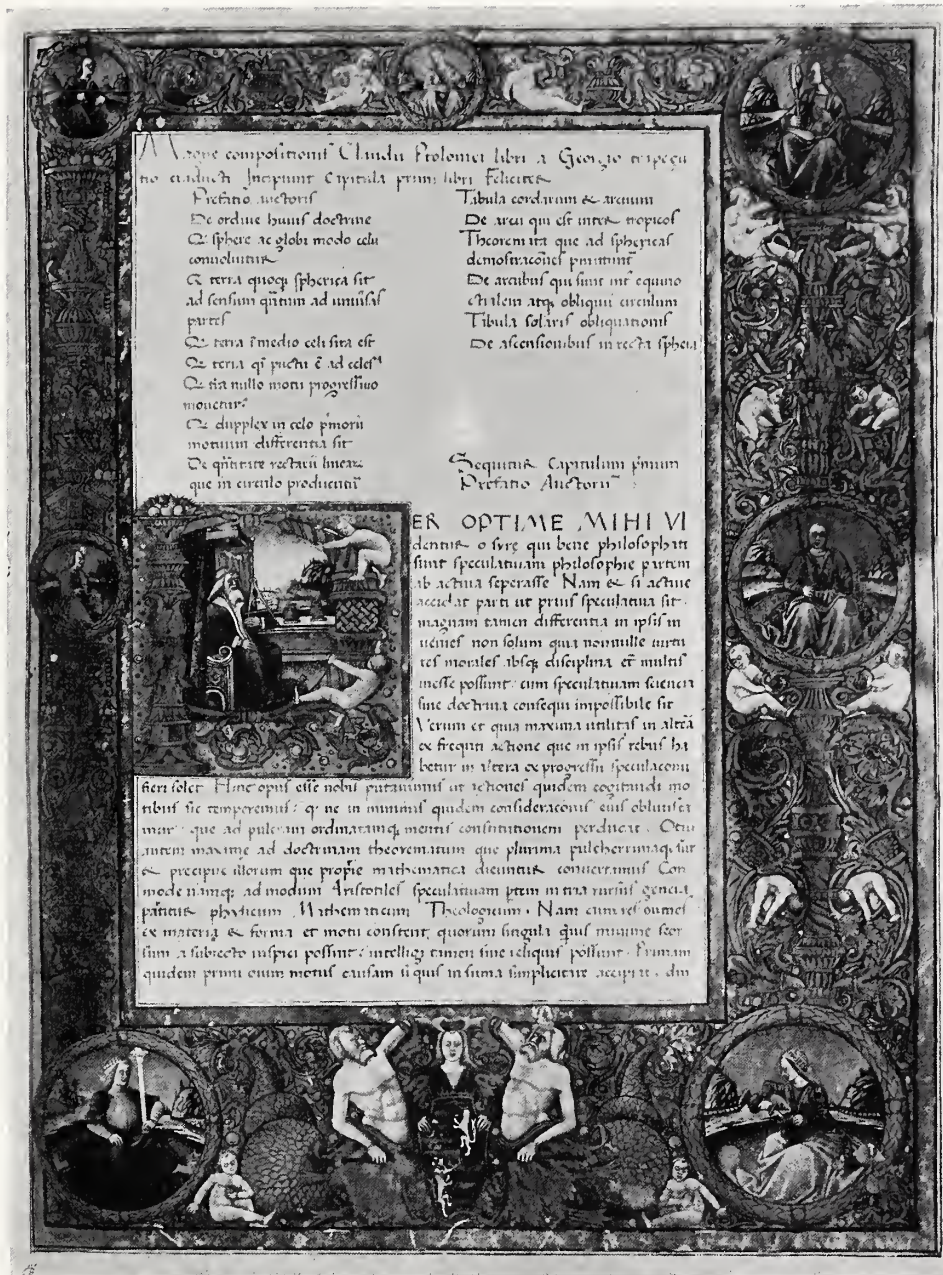 Magne compositionis Claudii Ptolomei libri a Georgio trapeçũ
tio traducti Incipiunt Capitula primi libri Feliciter
Prefatio auctoris
De ordine huius doctrine
Q sphere ac globi modo celũ
convoluitur
Q terra quoq; spherica sit
ad sensum q̃tum ad uniũsas
partes
Q terra ĩ medio celi sita est
Q terra q̃ pũctũ ẽ ad celest
Q tr̃a nullo motu progressiuo
mouetur
Q dupplex in celo pr̃morũ
motuum differentia sit
De q̃titate rectarũ linearũ
que in circulo producuntũ
Tabula cordarum & arcuum
De arcu qui est inter tropicos
Theoremata que ad sphericas
demostracões
De arcubus qui sunt int̃ equino
ctialem atq; obliquũ circulum
Tabula solaris obliquationis
De ascensionibus in recta sphera
Sequitur Capitulum pr̃mum
Prefatio Auctoris
ER OPTIME MIHI VI
dentur o syre qui bene philosophati
sunt speculatiuam philosophie partem
ab actiua seperasse Nam & si actiue
accidat parti ut prius speculatiua sit
magnam tamen differentiã in ipsis in
uenies non solum quia nonnulle uirtu
tes morales absq; disciplina et multis
inesse possunt cum speculatiuam sciencia
sine doctrina consequi impossibile sit
Verum et quia maxima utilitas in alterã
ex frequẽti actione que in ipsis rebus ha
betur in altera ex progressu speculaconũ
fieri solet Hinc opus esse nobis putauimus ut actiones quidem cogitandi mo
tibus sic temperemus q ne in minimis quidem consideracõis eius obliuisca
mur que ad pulcram ordinatamq; mentis constitutionem perducat Otiũ
autem maxime ad doctrinam theorematum que plurima pulcherrimaq; sũt
& precipue illorum que proprie mathematica dicuntur conuertamus Con
mode namq; ad modum Aristotiles speculatiuam ptem in tria rursus genera
partitur phisicum Mathematicum Theologicum Nam cum res omnes
ex materia & forma et motu constent quorum singula minime seor
sum a subiecto inspici possunt intelligi tamen sine reliquis possunt Primam
quidem primi motus causam si quis in suma simplicitate accipiat